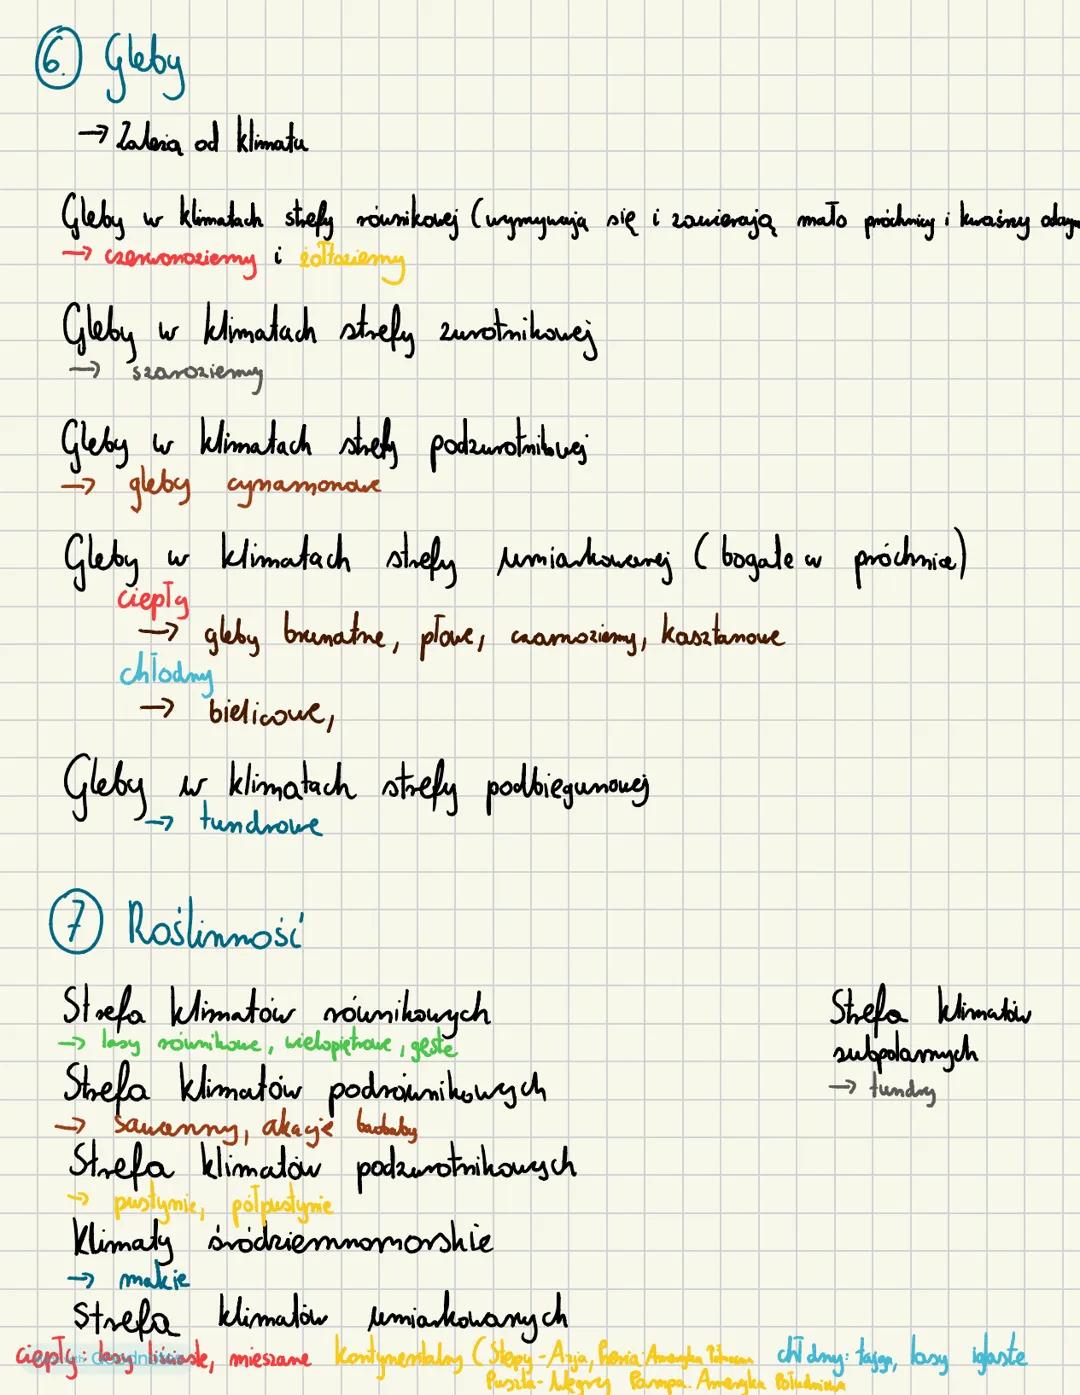 6. Gleby
→ Zależą od klimatu
Gleby w klimatach strefy równikowej (wymywają się i zawierają mało próchnicy i kwaśny
→ czerwonoziemy i żółtoziemy
Gleby w klimatach strefy zwrotnikowej
→ szaroziemy
Gleby w klimatach strefy podzwrotnikowej
→ gleby cynamonowe
Gleby w klimatach strefy umiarkowanej (bogate w próchnice)
ciepły
→ gleby brunatne, płowe, czarnoziemy, kasztanowe
chłodny
→ bielicowe,
Gleby w klimatach strefy podbiegunowej
→ tundrowe
7 Roślinność
Strefa klimatów równikowych
→ lasy równikowe, wielopiętrowe, gęste
Strefa klimatów podrównikowych
→ sawanny, akacje baobaby
Strefa klimatów podzwrotnikowych
→ pustynie, półpustynie
Klimaty śródziemnomorskie
→ makie
Strefa klimatów umiarkowanych
ciepły: lasy liściaste, mieszane kontynentalny (Stepy - Azja, Preria: Ameryka Północna chłodny: tajga, lasy iglaste
Puszta - Węgry Pampa: Ameryka Południowa
Strefa klimatów
subpolarnych
→ tundry